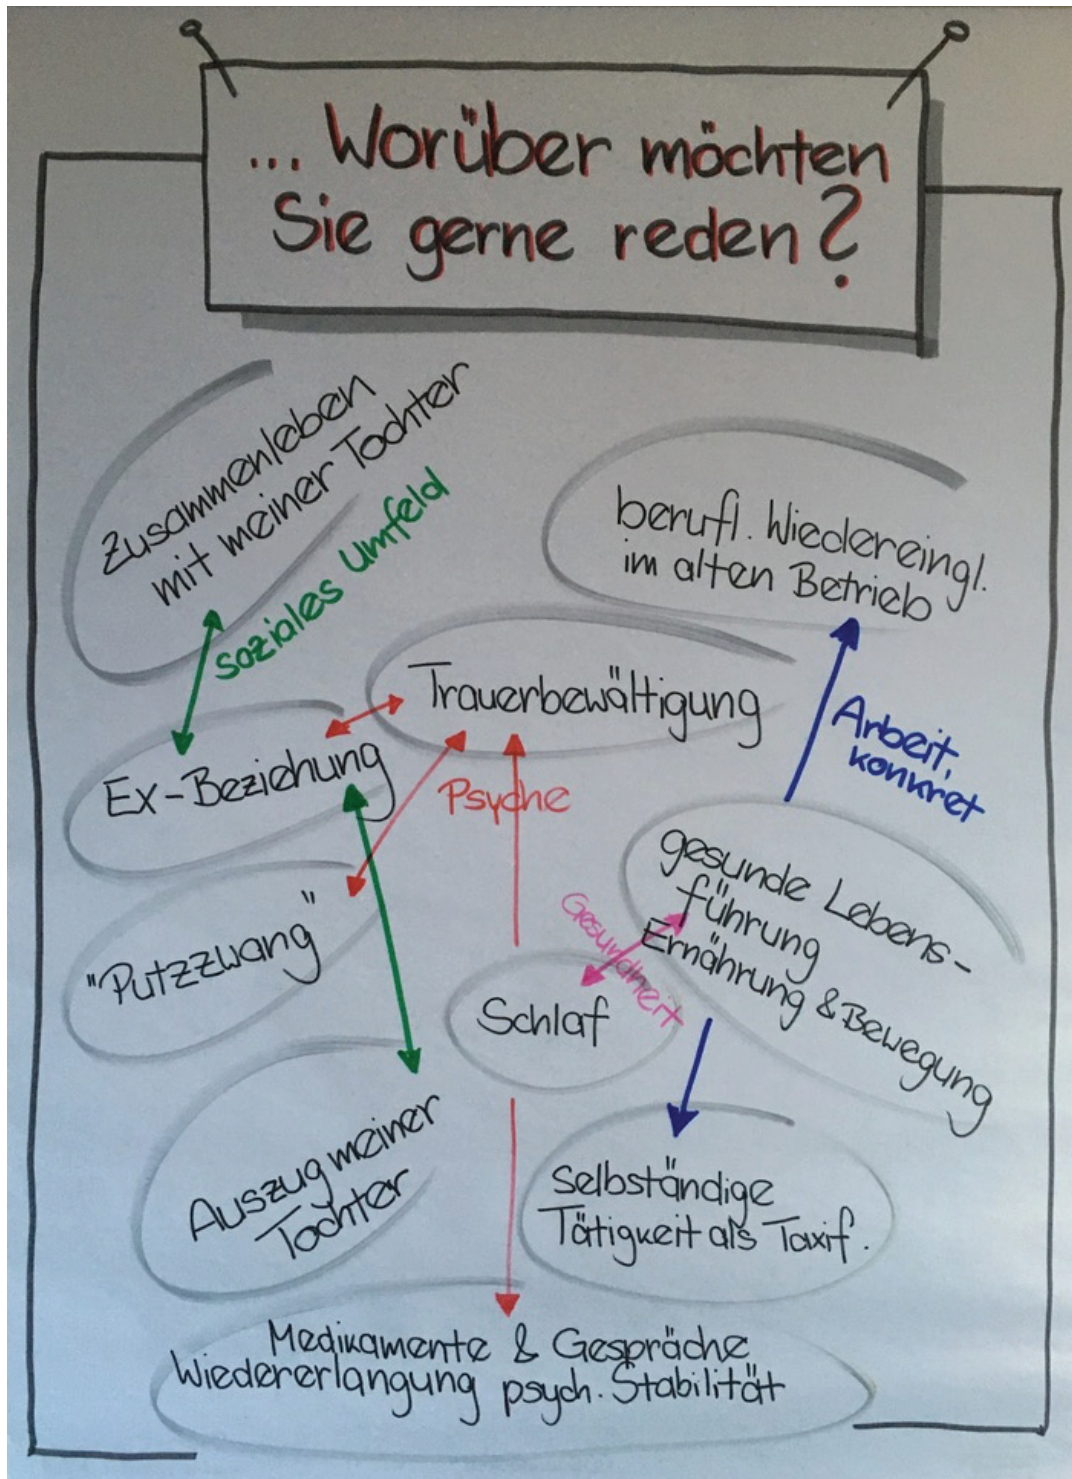 ... Worüber möchten
Sie gerne reden?
Zusammenleben
mit meiner Tochter
soziales Umfeld
berufl. Wiedereingl.
im alten Betrieb
Trauerbewältigung
Ex-Beziehung
Psyche
Arbeit,
konkret
gesunde Lebens-
führung
Ernährung & Bewegung
Gesundheit
"Putzzwang"
Schlaf
Auszug meiner
Tochter
Selbständige
Tätigkeit als Taxif.
Medikamente & Gespräche
Wiedererlangung psych. Stabilität